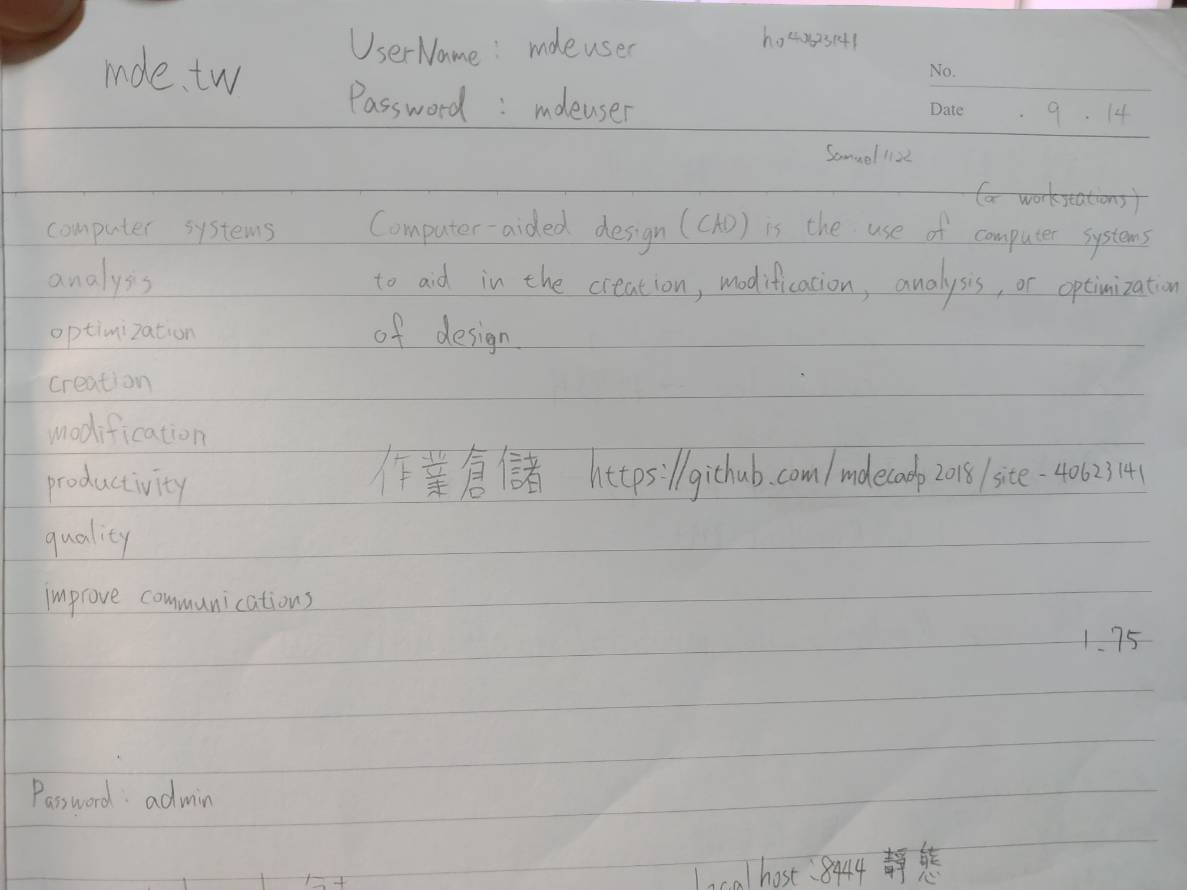 mde.tw
UserName : mdeuser
Password : mdeuser
ho40623141
No.
Date . 9 . 14
Samuel1122
(or workstations)
computer systems
analysis
optimization
creation
modification
productivity
quality
improve communications
Computer-aided design (CAD) is the use of computer systems
to aid in the creation, modification, analysis, or optimization
of design.
作業倉儲 https://github.com/mdecadp2018/site-40623141
1.75
Password : admin
localhost:8444 靜態